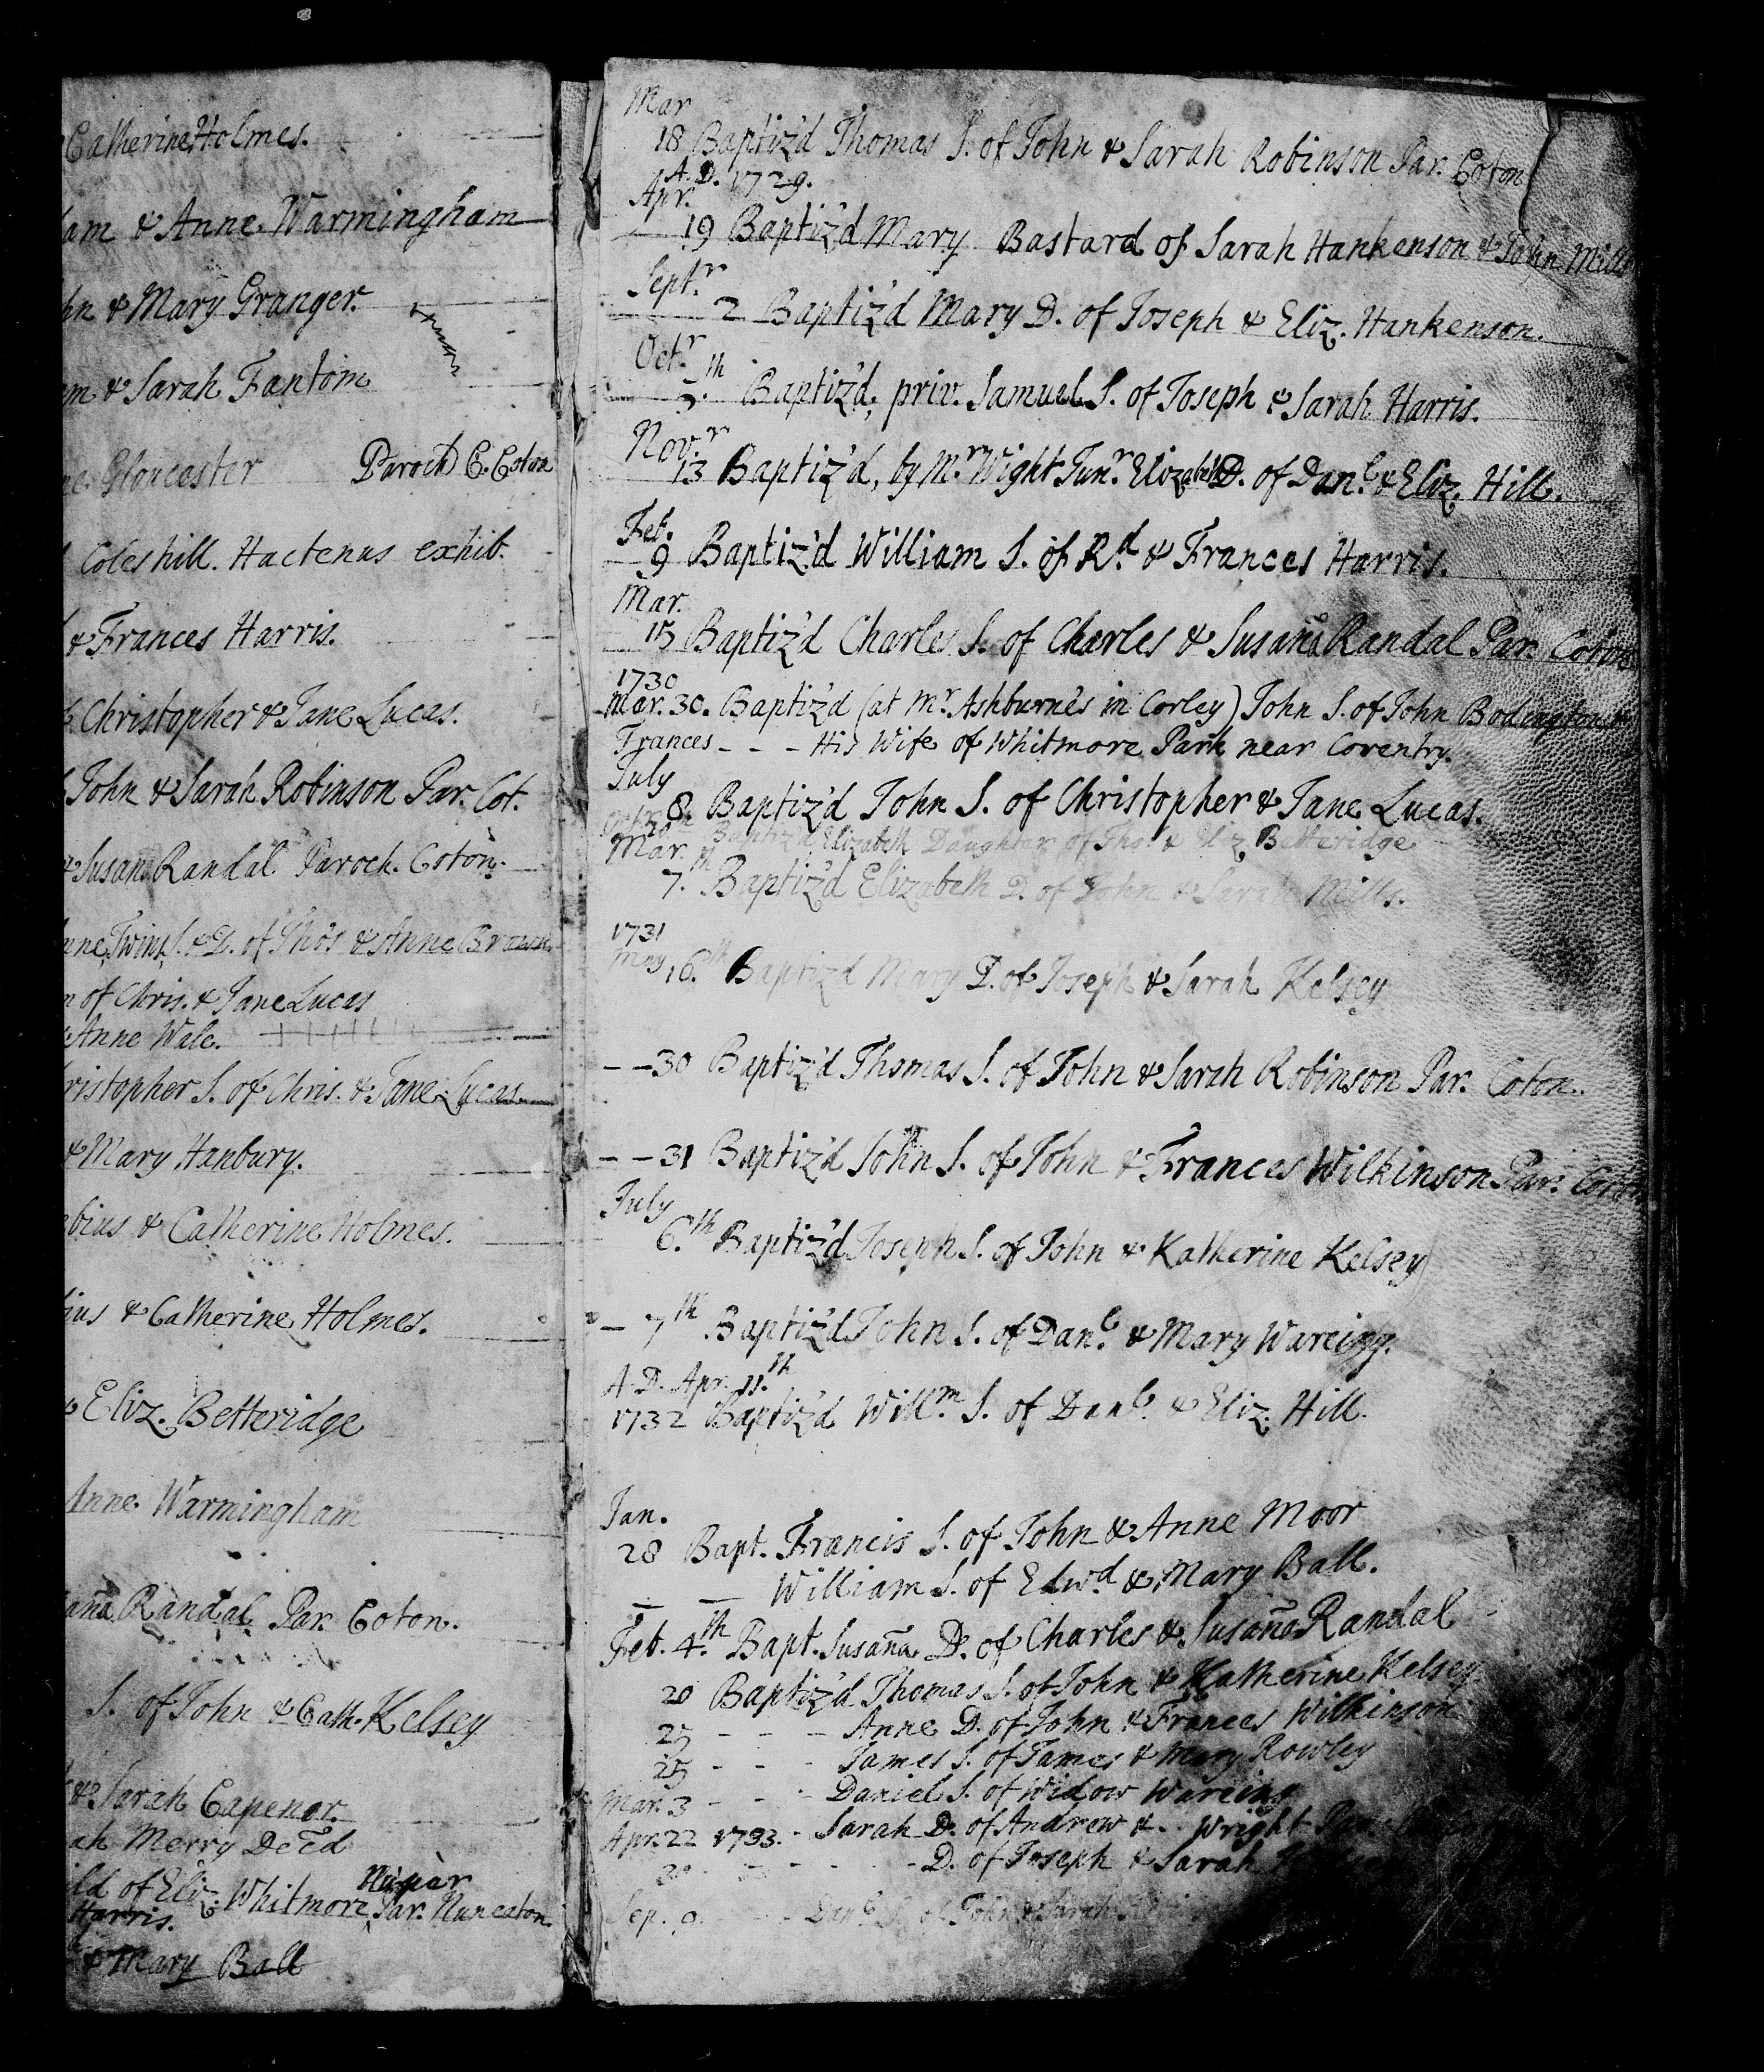 Catherine Holmes.
am & Anne Warmingham
hn & Mary Granger.
m & Sarah Fantom
Gloucester Paroch C. Coton
Coleshill. Hactenus exhib.
& Frances Harris.
Christopher & Jane Lucas.
John & Sarah Robinson Par. Cot.
& Susana Randal Paroch. Coton.
nne Twins S. & D. of Thos & Anne Brawn
n of Chris. & Jane Lucas
Anne Wale.
ristopher S. of Chris. & Jane Lucas
& Mary Hanbury.
bius & Catherine Holmes.
ius & Catherine Holmes.
& Eliz. Betteridge
Anne Warmingham
ana Randal Par. Coton.
S. of John & Cath. Kelsey
& Sarah Capener
ah Merry Deced
Nuper
ild of Eliz. Whitmore Par. Nuneaton
Harris.
& Mary Ball
Mar
18 Baptiz'd Thomas S. of John & Sarah Robinson Par. Coton
A.D. 1729.
Apr.
19 Baptiz'd Mary Bastard of Sarah Hankenson & John Mills
Septr
2 Baptiz'd Mary D. of Joseph & Eliz. Hankenson.
Octr
th Baptiz'd, priv. Samuel S. of Joseph & Sarah Harris.
Novr
13 Baptiz'd, by Mr. Wight Junr. Elizabeth D. of Danl. & Eliz. Hill.
Feb.
9 Baptiz'd William S. of Rd. & Frances Harris.
Mar.
15 Baptiz'd Charles S. of Charles & Susana Randal Par. Coton
1730
Mar. 30. Baptiz'd (at Mr. Ashburne's in Corley) John S. of John Bodington &
Frances - - - His Wife of Whitmore Park near Coventry.
July
8. Baptiz'd John S. of Christopher & Jane Lucas.
Baptiz'd Elizabeth Daughter of Tho. & Eliz Betteridge
Mar.
7.th Baptiz'd Elizabeth D. of John & Sarah Mills.
1731
May 16.th Baptiz'd Mary D. of Joseph & Sarah Kelsey
- - 30 Baptiz'd Thomas S. of John & Sarah Robinson Par. Coton.
- - 31 Baptiz'd John S. of John & Frances Wilkinson Par. Coton
July
6.th Baptiz'd Joseph S. of John & Katherine Kelsey
- 7th Baptiz'd John S. of Danl. & Mary Wareing.
A.D. Apr. 11.th
1732 Baptiz'd Willm. S. of Danl. & Eliz. Hill.
Jan.
28 Bapt. Francis S. of John & Anne Moor
- - William S. of Edwd & Mary Ball.
Feb. 4.th Bapt. Susana D. of Charles & Susana Randal
20 Baptiz'd Thomas S. of John & Katherine Kelsey
25 - - - Anne D. of John & Frances Wilkinson
25 - - - James S. of James & Mary Rowley
Mar. 3 - - - Daniel S. of Widow Wareing
Apr. 22 1733. - Sarah D. of Andrew & - - Wright Par.
30 - - - - D. of Joseph & Sarah
Sep. 9. - - - Danl. S. of John & Sarah